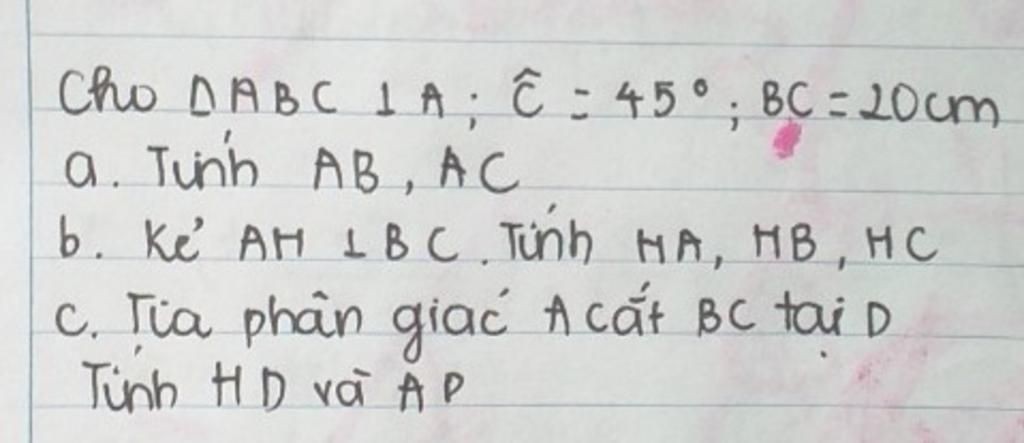 Cho ΔABC ⊥ A; Ĉ = 45°; BC = 20cm
a. Tính AB, AC
b. Kẻ AH ⊥ BC. Tính HA, HB, HC
c. Tia phân giác A cắt BC tại D
Tính HD và AD